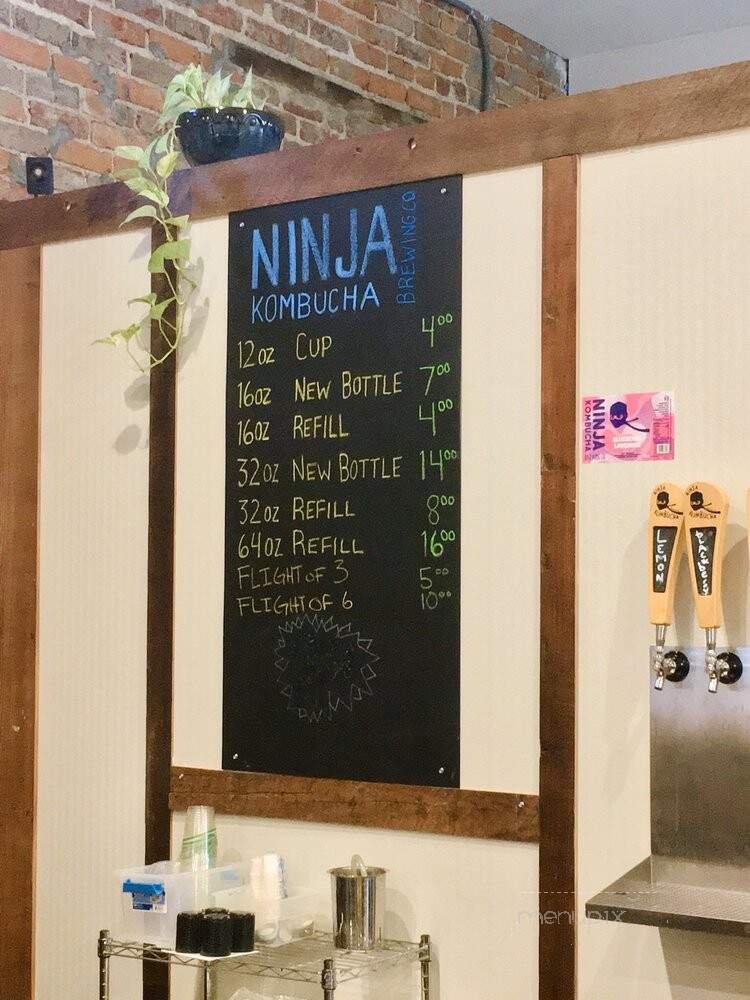 NINJA
KOMBUCHA
BREWING CO
12oz CUP 4.00
16oz NEW BOTTLE 7.00
16oz REFILL 4.00
32oz NEW BOTTLE 14.00
32oz REFILL 8.00
64oz REFILL 16.00
FLIGHT OF 3 5.00
FLIGHT OF 6 10.00
NINJA
KOMBUCHA
NINJA
KOMBUCHA
LEMON
NINJA
KOMBUCHA
blackberry
menupix